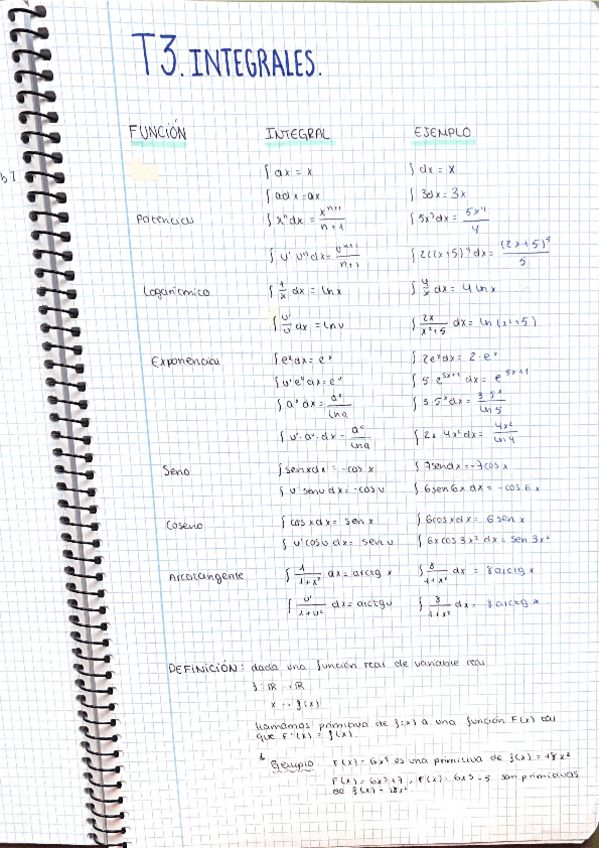 T3. INTEGRALES.
FUNCIÓN INTEGRAL EJEMPLO
∫ dx = x ∫ dx = x
∫ adx = ax ∫ 3dx = 3x
Potencial ∫ xⁿdx = xⁿ⁺¹/n+1 ∫ 5x³dx = 5x⁴/4
∫ u' uⁿ dx = uⁿ⁺¹/n+1 ∫ 2(2x+5)⁴ dx = (2x+5)⁵/5
Logarítmico ∫ 1/x dx = ln x ∫ 4/x dx = 4 ln x
∫ u'/u dx = ln u ∫ 2x/x²+5 dx = ln (x²+5)
Exponencial ∫ eˣdx = eˣ ∫ 2eˣdx = 2·eˣ
∫ u'eᵘdx = eᵘ ∫ 5·e⁵ˣ⁺¹ dx = e⁵ˣ⁺¹
∫ aˣdx = aˣ/ln a ∫ 3·5ˣdx = 3·5ˣ/ln 5
∫ u'·aᵘ·dx = aᵘ/ln a ∫ 2x 4x² dx = 4x²/ln 4
Seno ∫ senxdx = -cos x ∫ 7sendx = -7cos x
∫ u' senu dx = -cos u ∫ 6sen6x dx = -cos 6x
Coseno ∫ cos xdx = sen x ∫ 6cosxdx = 6sen x
∫ u'cosu dx = sen u ∫ 6xcos3x² dx = sen 3x²
Arcotangente ∫ 1/1+x² dx = arctg x ∫ 8/1+x² dx = 8arctg x
∫ u'/1+u² dx = arctgu ∫ 8/1+x² dx = 8arctg x
DEFINICIÓN: dada una función real de variable real
f: ℝ → ℝ
x → f(x)
llamamos primitiva de f(x) a una función F(x) tal
que F'(x) = f(x).
Ejemplo F(x) = 6x³ es una primitiva de f(x) = 18x²
F(x) = 6x³+7, F(x) = 6x³-5 son primitivas
de f(x) = 18x²